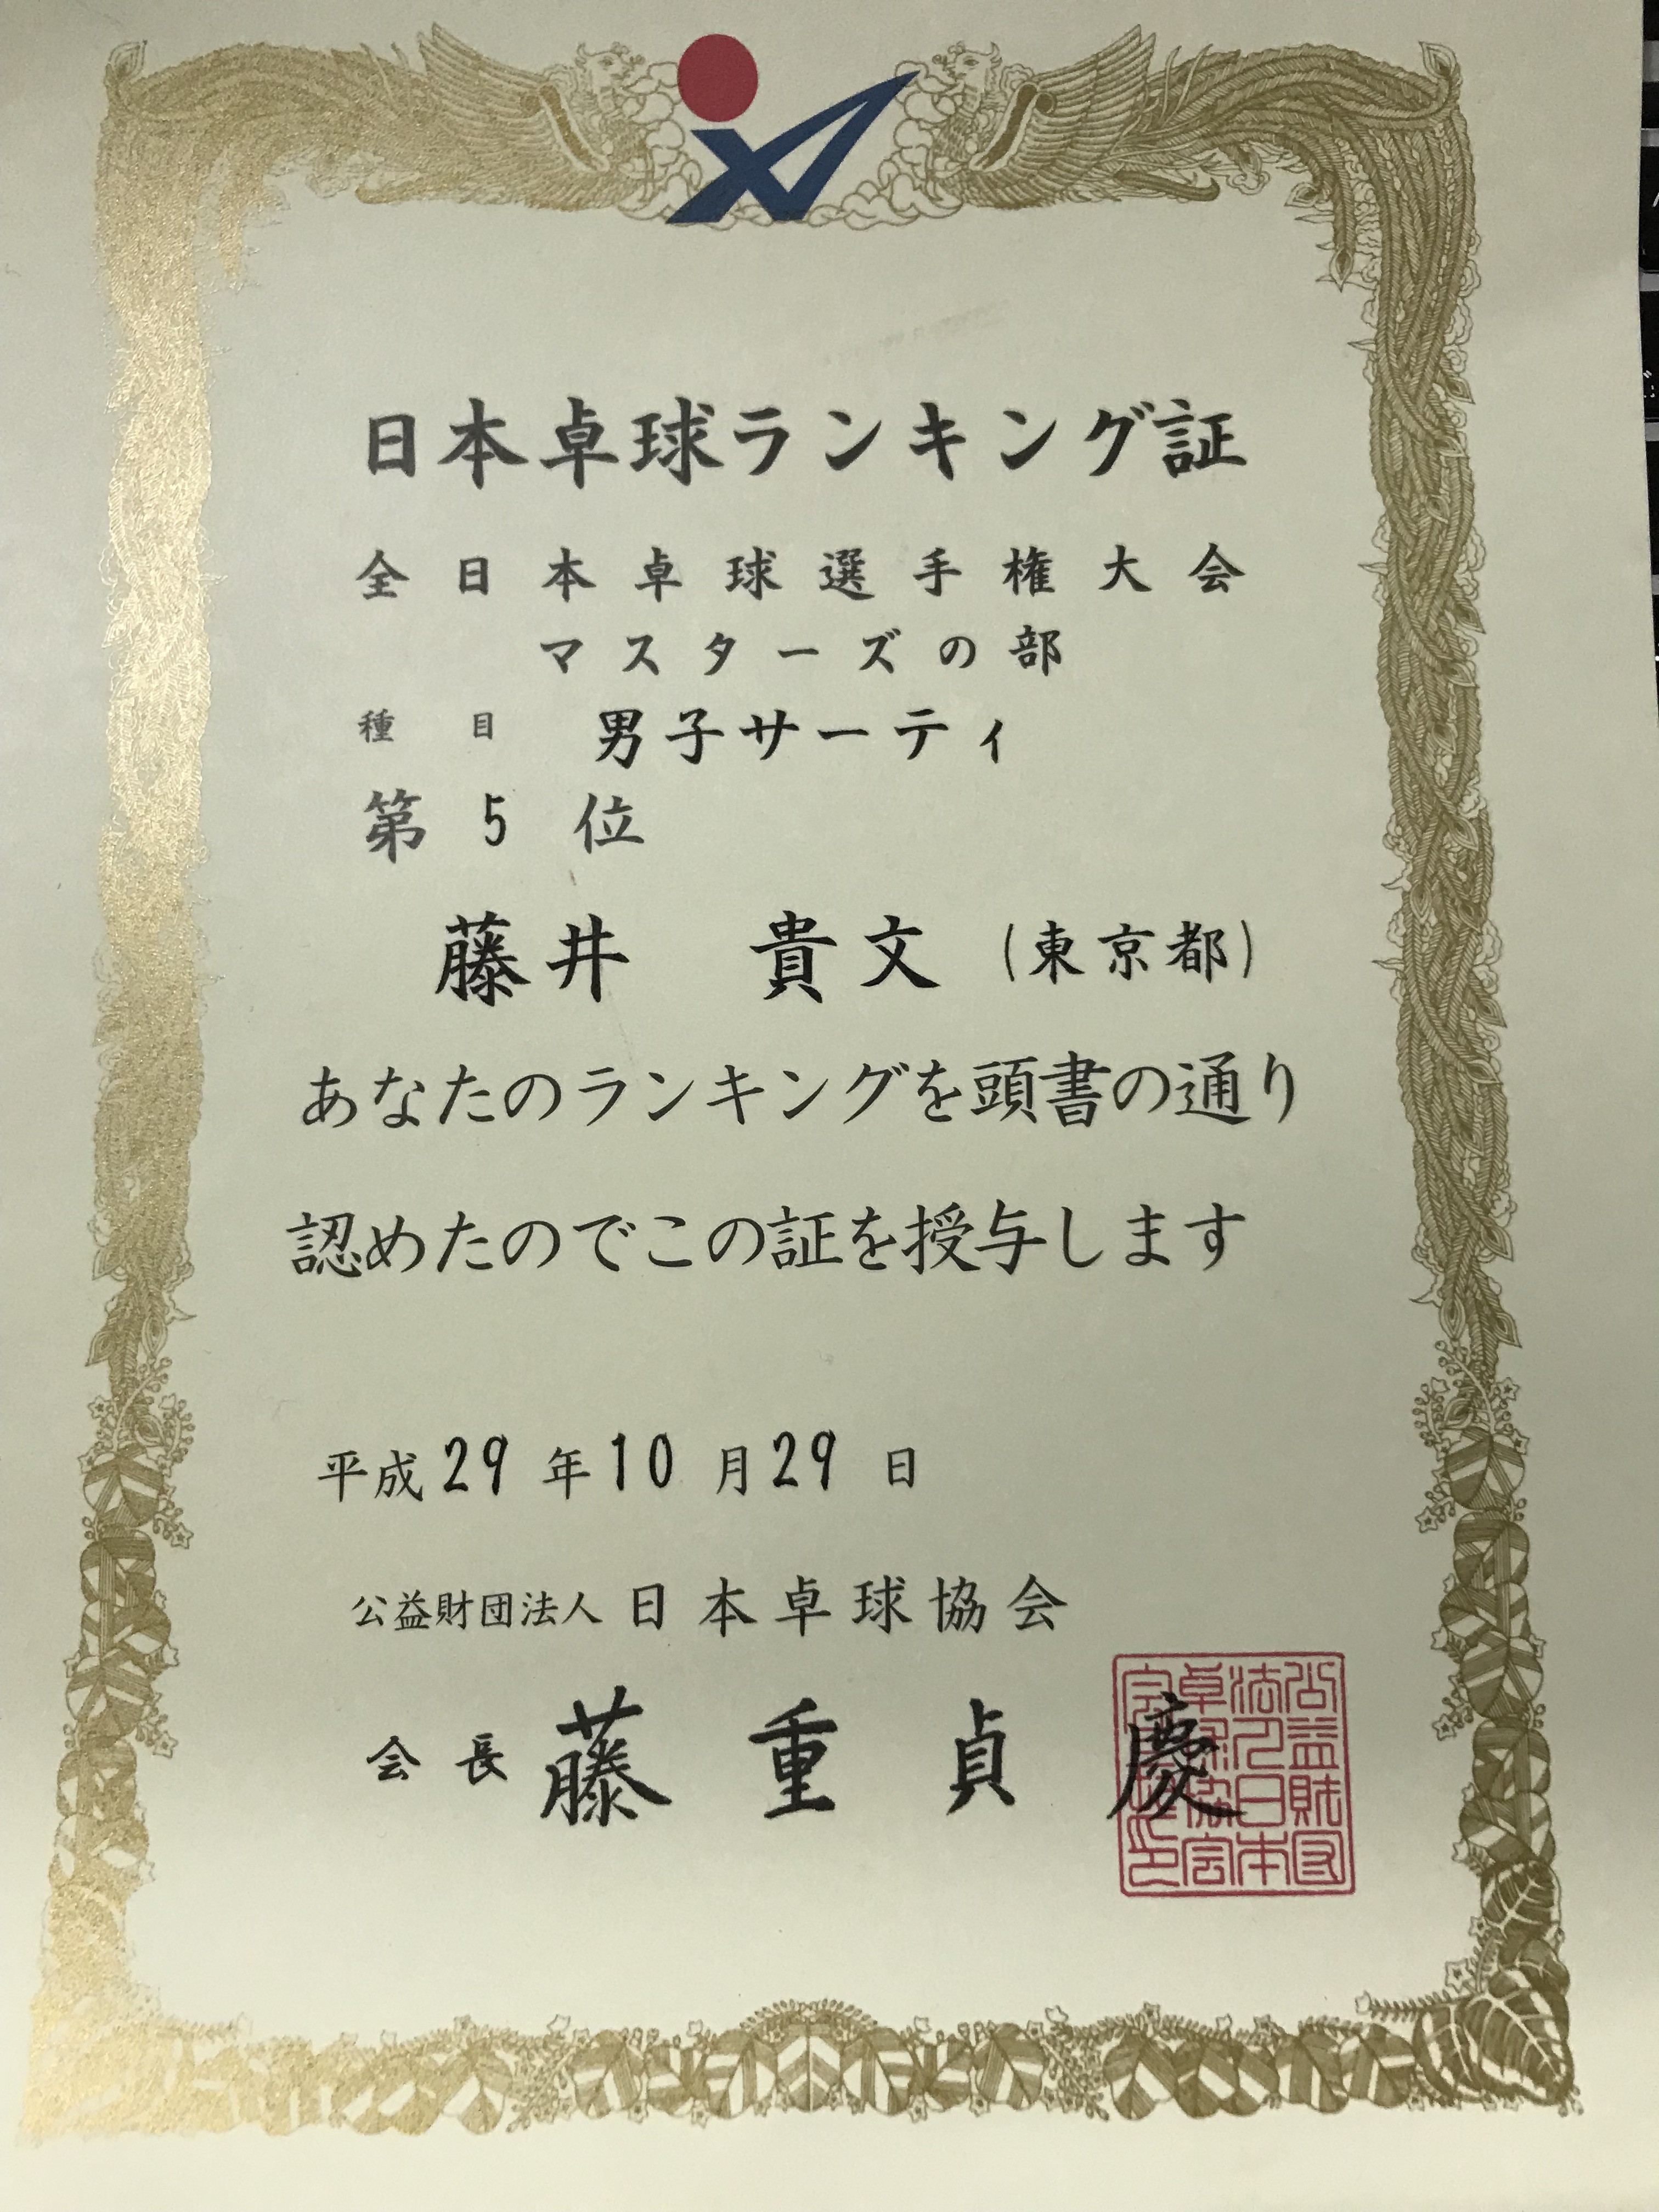 日本卓球ランキング証
全日本卓球選手権大会
マスターズの部
種目 男子サーティ
第 5 位
藤井 貴文 (東京都)
あなたのランキングを頭書の通り
認めたのでこの証を授与します
平成 29 年 10 月 29 日
公益財団法人 日本卓球協会
会長 藤重貞慶
公益財団
法人日本
卓球協会
会長之印